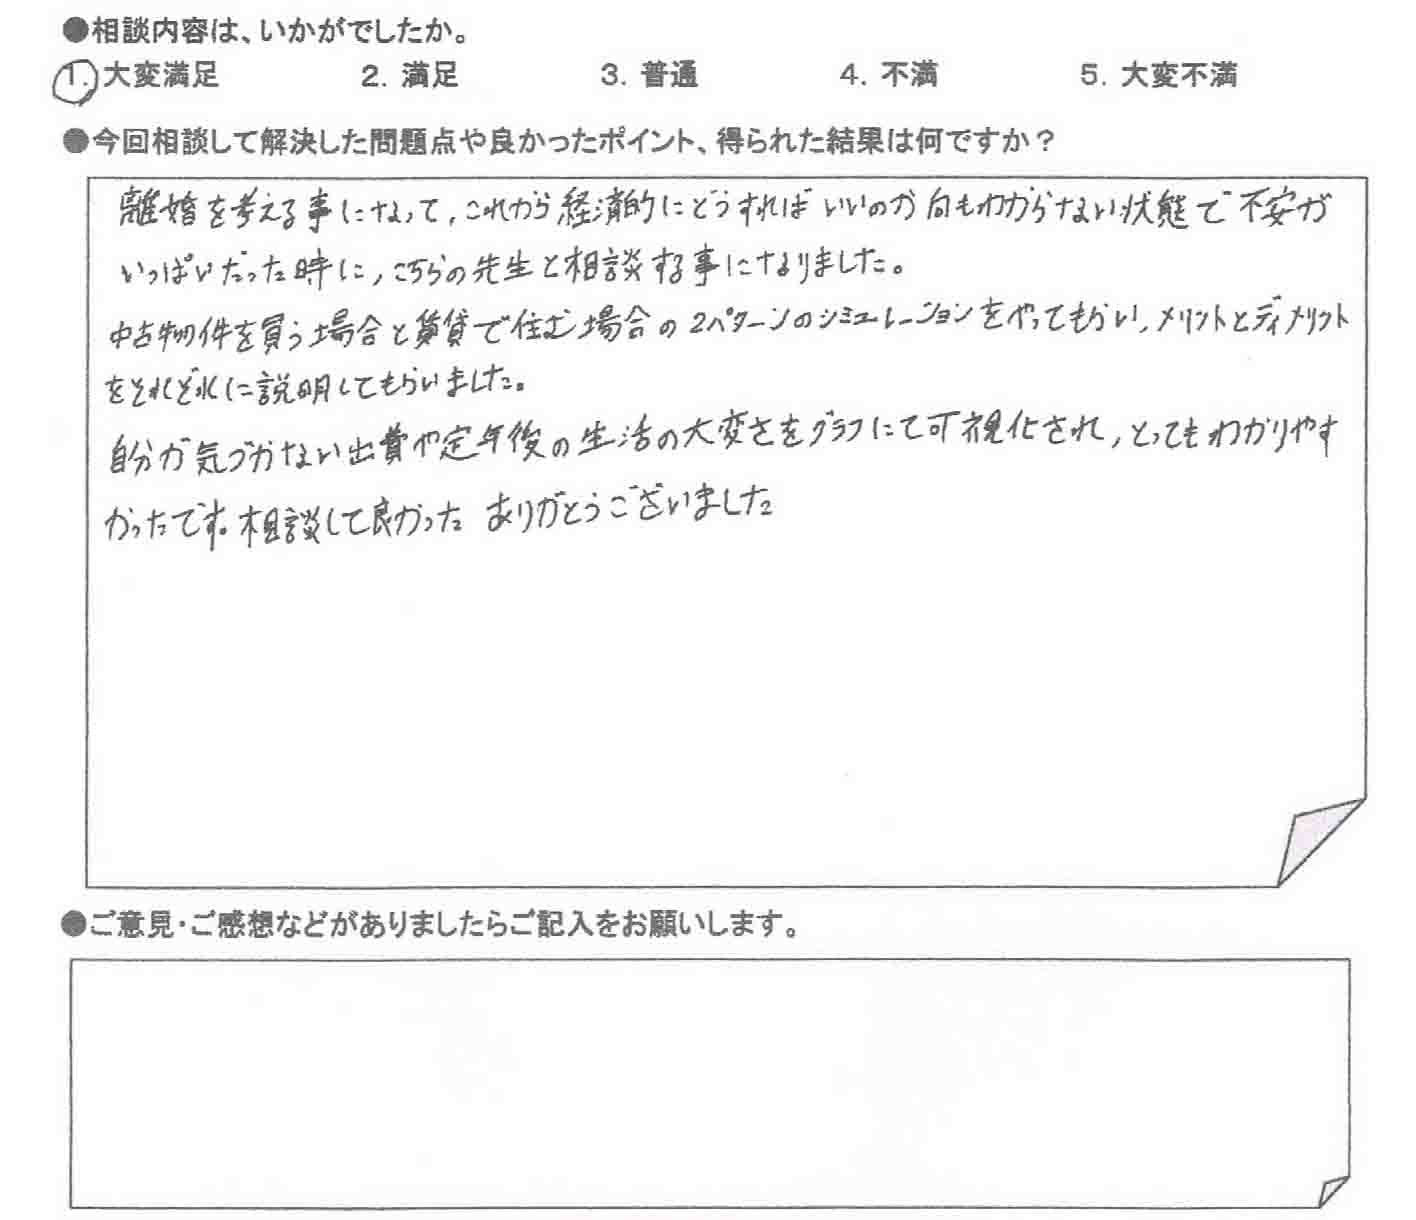 ●相談内容は、いかがでしたか。
1. 大変満足 2. 満足 3. 普通 4. 不満 5. 大変不満
●今回相談して解決した問題点や良かったポイント、得られた結果は何ですか？
離婚を考える事になって、これから経済的にどうすればいいのか何もわからない状態で不安が
いっぱいだった時に、こちらの先生と相談する事になりました。
中古物件を買う場合と賃貸で住む場合の2パターンのシミュレーションをやってもらい、メリットとディメリット
をそれぞれに説明してもらいました。
自分が気づかない出費や定年後の生活の大変さをグラフにて可視化され、とってもわかりやす
かったです。相談して良かった ありがとうございました
●ご意見・ご感想などがありましたらご記入をお願いします。